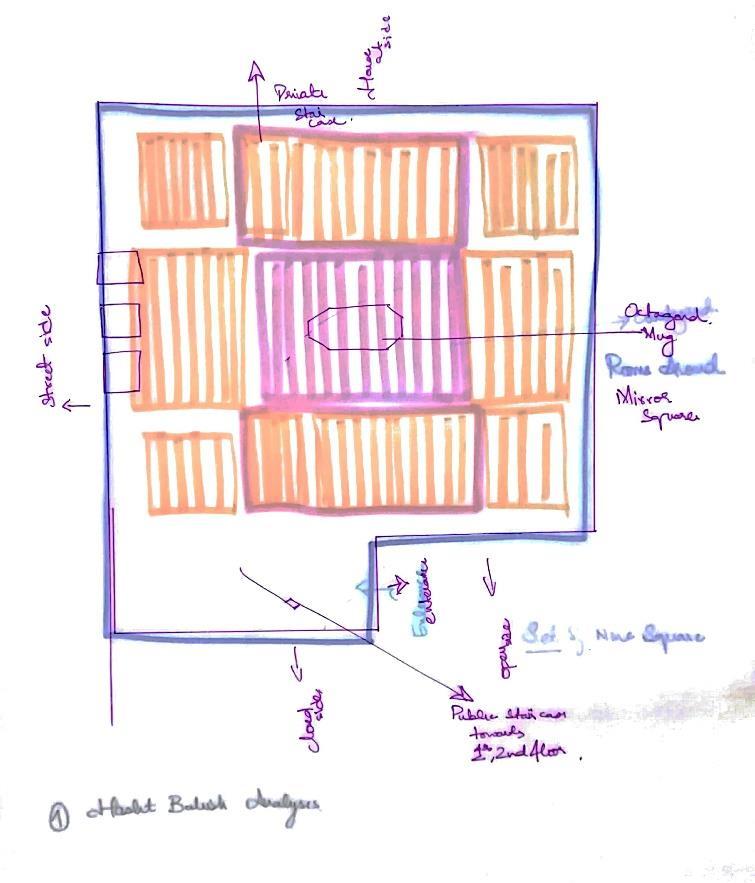 House
at
side
Private
Stair
case.
Street side
Octagonal.
Mug
Rooms Around
Mirror
Square
Entrance
enterance
open side
Set of Nine Square
closed side
Public Staircase
towards
1st, 2nd floor.
① Hasht Bahisht Analyses